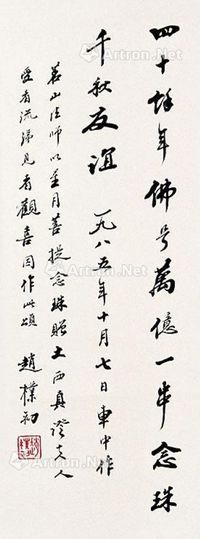 四十餘年佛号萬億一串念珠
千秋友谊 一九八五年十月七日車中作
茗山法師以星月菩提念珠贈土西真證夫人
爱者流涕見者觀喜因作此頌 趙樸初